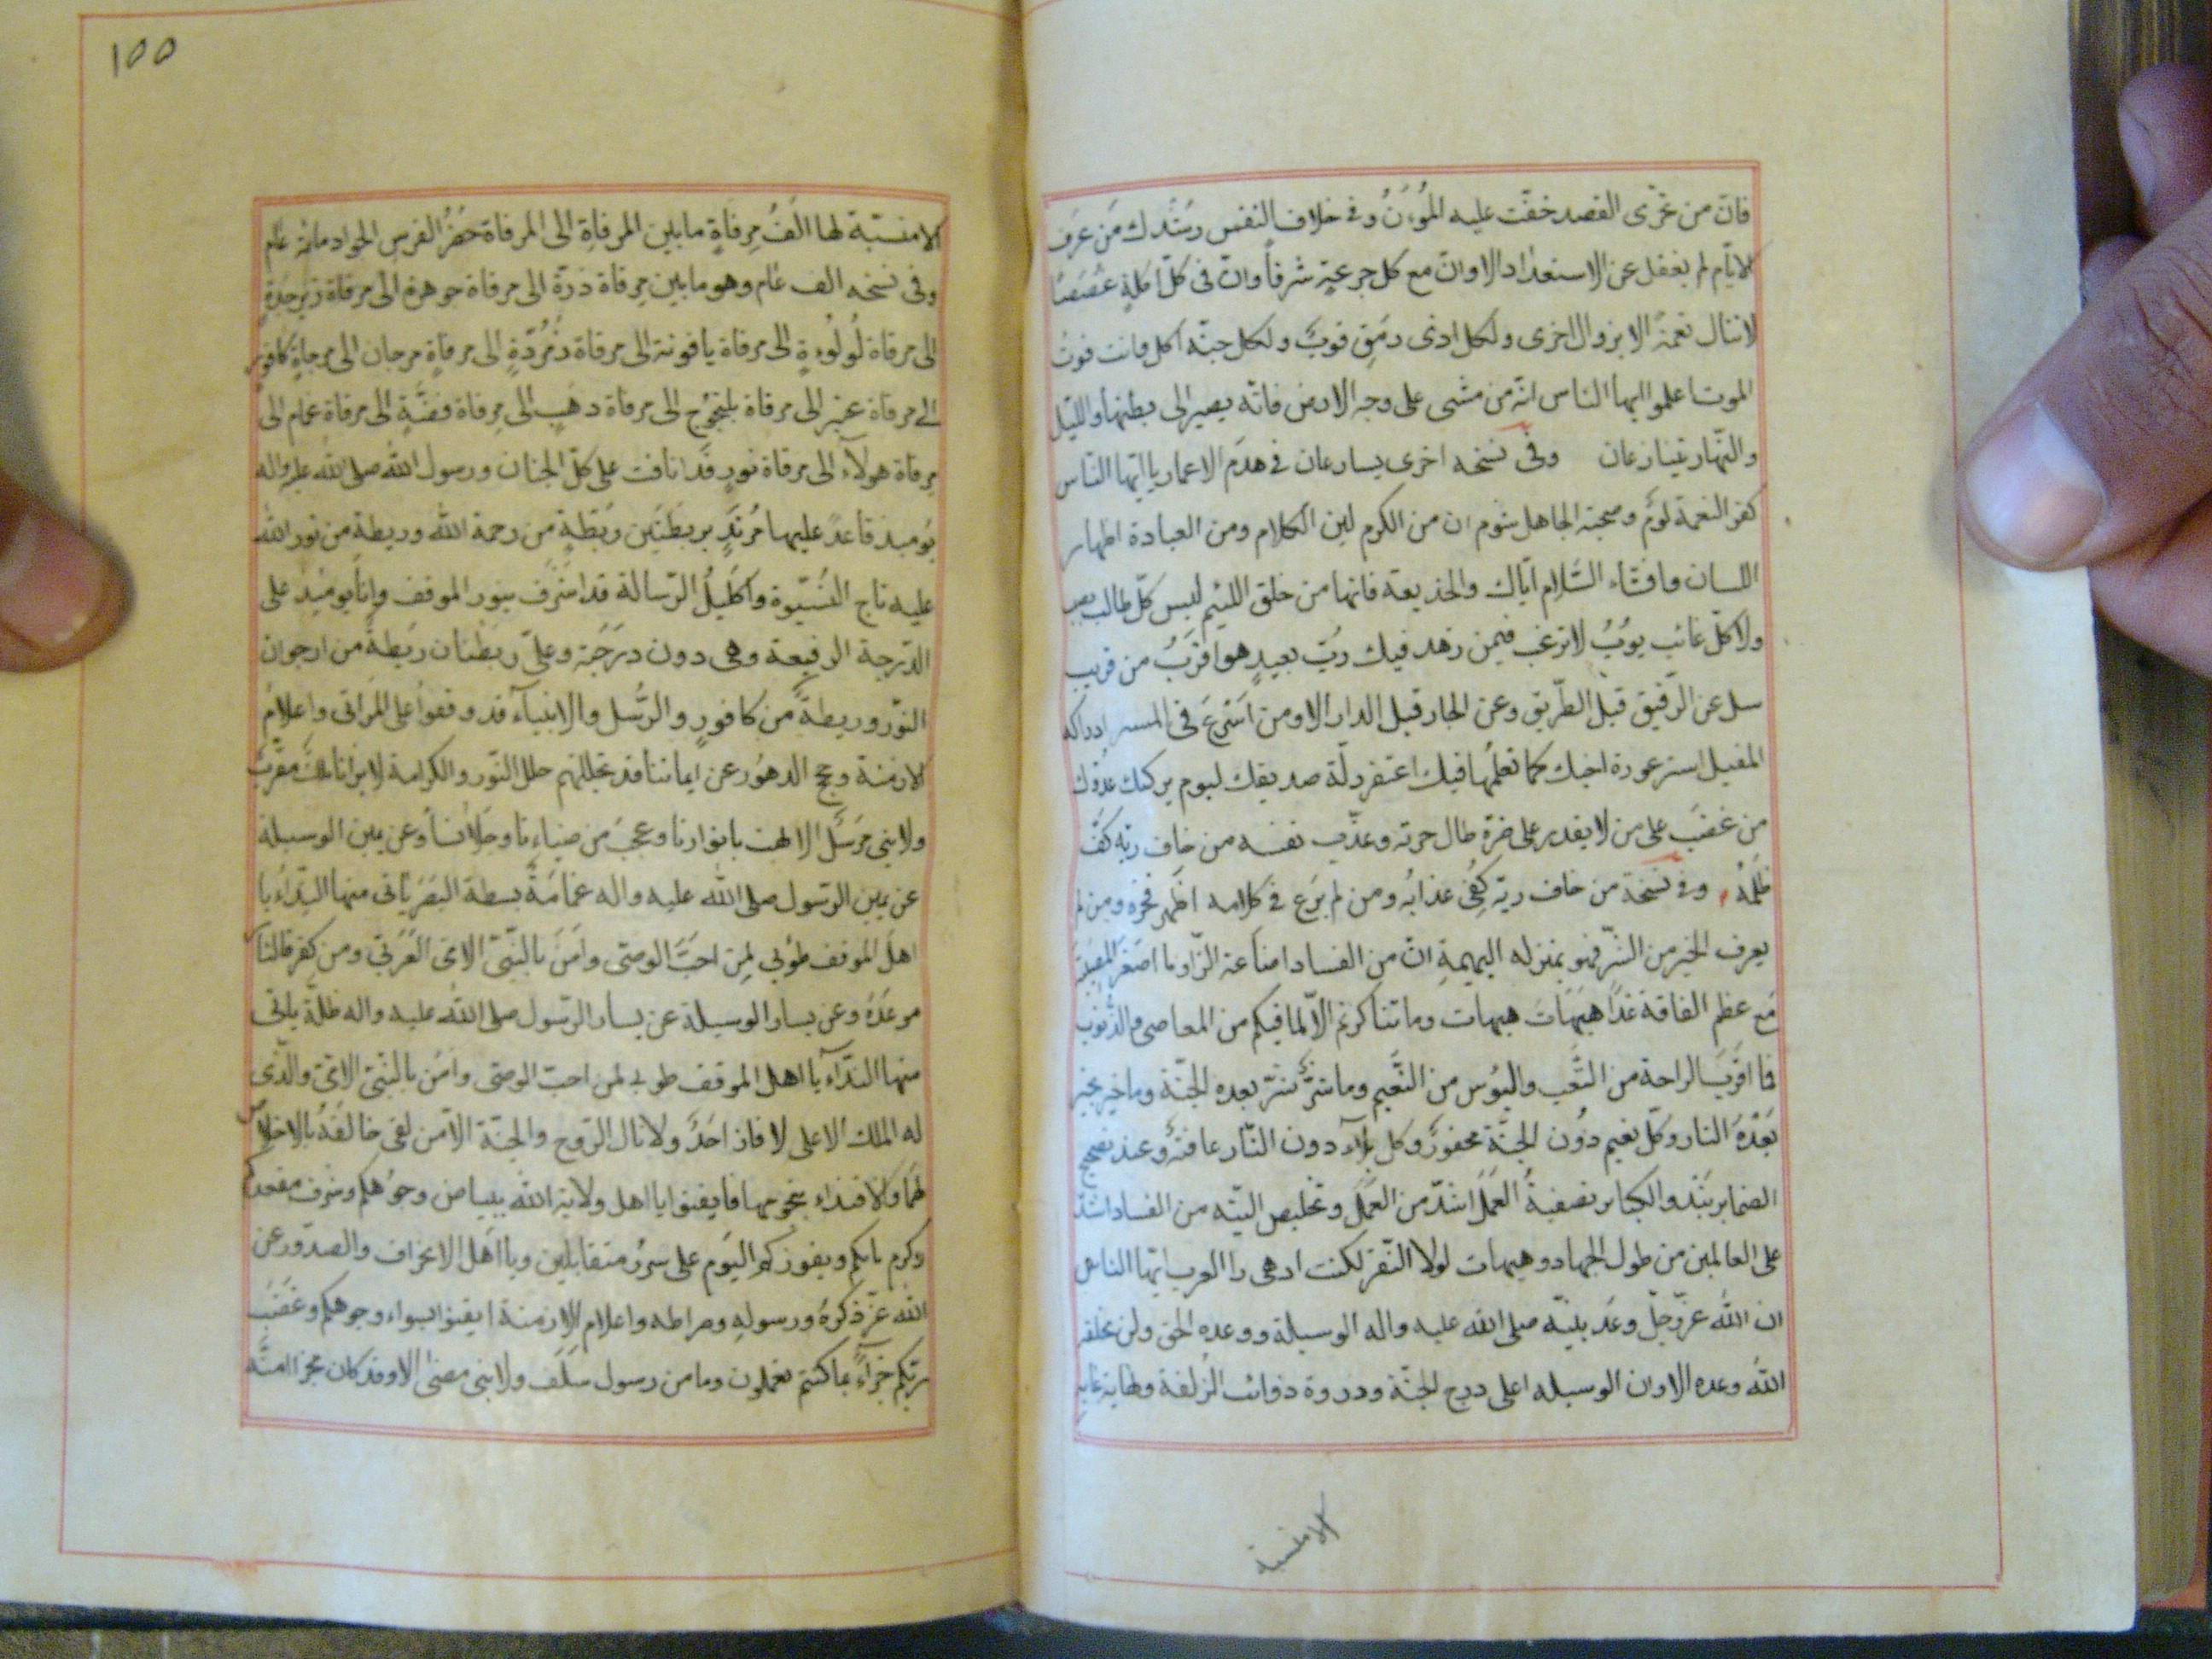 فان من تحرى القصد خفّت عليه المؤن وفي خلاف النفس رشدك من عرف
الايّام لم يغفل عن الاستعداد الا وانّ مع كل جرعة شرقاً وان في كلّ اكلةٍ غصصا
لاتنال نعمة الا بزوال اخرى ولكل ذى رمق قوت ولكل حبّة اكل وانت قوت
الموت اعلموا ايها الناس انّه من مشى على وجه الارض فانّه يصير الى بطنها والليل
والنّهار يتنازعان وفى نسخه اخرى يسارعان فى هدم الاعمار يا ايّها النّاس
كفر النعمة لوم وصحبة الجاهل شوم ان من الكرم لين الكلام ومن العبادة اظهار
اللسان وافشاء السّلام ايّاك والخديعة فانها من خلق اللئيم ليس كلّ طالب يصيب
ولا كلّ غائب يؤب لا ترغب فيمن زهد فيك ربّ بعيدٍ هو اقرب من قريب
سل عن الرّفيق قبل الطّريق وعن الجار قبل الدار الا ومن اسرع فى المسير ادركه
المقيل استر عورة اخيك كما تعلمها فيك اغتفر زلّة صديقك ليوم يركبك عدوّك
من غضب على من لا يقدر على ضرّه طال حزنه وعذّب نفسه من خاف ربّه كفّ
ظلمه وفى نسخة من خاف ربّه كفى عذابه ومن لم يرع فى كلامه اظهر فخره ومن لم
يعرف الخير من الشرّ فهو بمنزله البهيمةِ انّ من الفساد اضاعة الزّاد ما اصغر المصيبة
مع عظم الفاقة غداً هيهات هيهات وما تناكرتم الاّ لما فيكم من المعاصى والذّنوب
فما اقرب الراحة من التّعب والبؤس من النّعيم وما شرّ بشرّ بعده الجنّة وما خير بخير
بعده النار وكلّ نعيم دون الجنّة محقور وكل بلاء دون النّار عافية وعند تصحيح
الضماير تبدو الكباير تصفية العمل اشدّ من العمل وتخليص النيّه من الفساد اشدّ
على العالمين من طول الجهاد وهيهات لولا التّقى لكنت ادهى العرب ايّها الناس
ان الله عزّ وجلّ وعد نبيّه صلى الله عليه واله الوسيلة ووعده الحق ولن يخلف
الله وعده الا وان الوسيله اعلى درج الجنّة وذروة ذوائب الزلفة ونهاية غاية
الامنية
١٥٥
الامنيّة لها الف مرقاةٍ ما بين المرقاةِ الى المرقاة حضر الفرس الجواد مائة عام
وفى نسخه الف عام وهو ما بين مرقاة درّة الى مرقاة جوهرة الى مرقاة زبرجدةٍ
الى مرقاة لؤلؤةٍ الى مرقاة ياقوتة الى مرقاة زمرّدةٍ الى مرقاةٍ مرجان الى مرقاةٍ كافور
الى مرقاة عنبر الى مرقاة يلنجوج الى مرقاة ذهبٍ الى مرقاة فضّةٍ الى مرقاة غمام الى
مرقاة هوآء الى مرقاة نورٍ قد انافت على كلّ الجنان ورسول الله صلى الله عليه واله
يومئذ قاعد عليها مرتدٍ بريطتين ريطةٍ من رحمة الله وريطة من نور الله
عليه تاج النّبوّة واكليل الرّسالة قد اشرف بنور الموقف وانا يومئذ على
الدّرجة الرفيعة وهى دون درجته وعلىّ ريطتان ريطة من ارجوان
النّور وريطة من كافورٍ والرّسل والانبيآء قد وقفوا على المراقى واعلام
الازمنة وحجج الدهور عن ايماننا قد تجلّلتهم حلل النّور والكرامة لا يرانا ملك مقرّب
ولا نبى مرسل الا بهت بانوارنا وعجب من ضياءنا وجلالتنا وعن يمين الوسيلة
عن يمين الرّسول صلى الله عليه واله غمامة بسطة البصر ياتى منها النّداء يا
اهل الموقف طوبى لمن احبّ الوصى وامن بالنّبىّ الامّى العربى ومن كفر فالنار
موعده وعن يسار الوسيلة عن يسار الرّسول صلى الله عليه واله ظلّة ياتى
منها النّدآء يا اهل الموقف طوبى لمن احبّ الوصى وامن بالنّبىّ الامّى والّذى
له الملك الاعلى لا فاز احد ولا نال الرّوح والجنّة الا من لقى خالقه بالاخلاص
لهما والاقتداء بنجومهما فايقنوا يا اهل ولاية الله ببياض وجوهكم وشرف مقعدكم
وكرم مابكم وبفوزكم اليوم على سرر متقابلين ويا اهل الانحراف والصدور عن
الله عزّ ذكره ورسوله وصراطه واعلام الازمنة ايقنوا بسواد وجوهكم وغضب
ربّكم جزآءً بما كنتم تعملون وما من رسول سلف ولا نبى مضى الا وقد كان مخبرا امّته